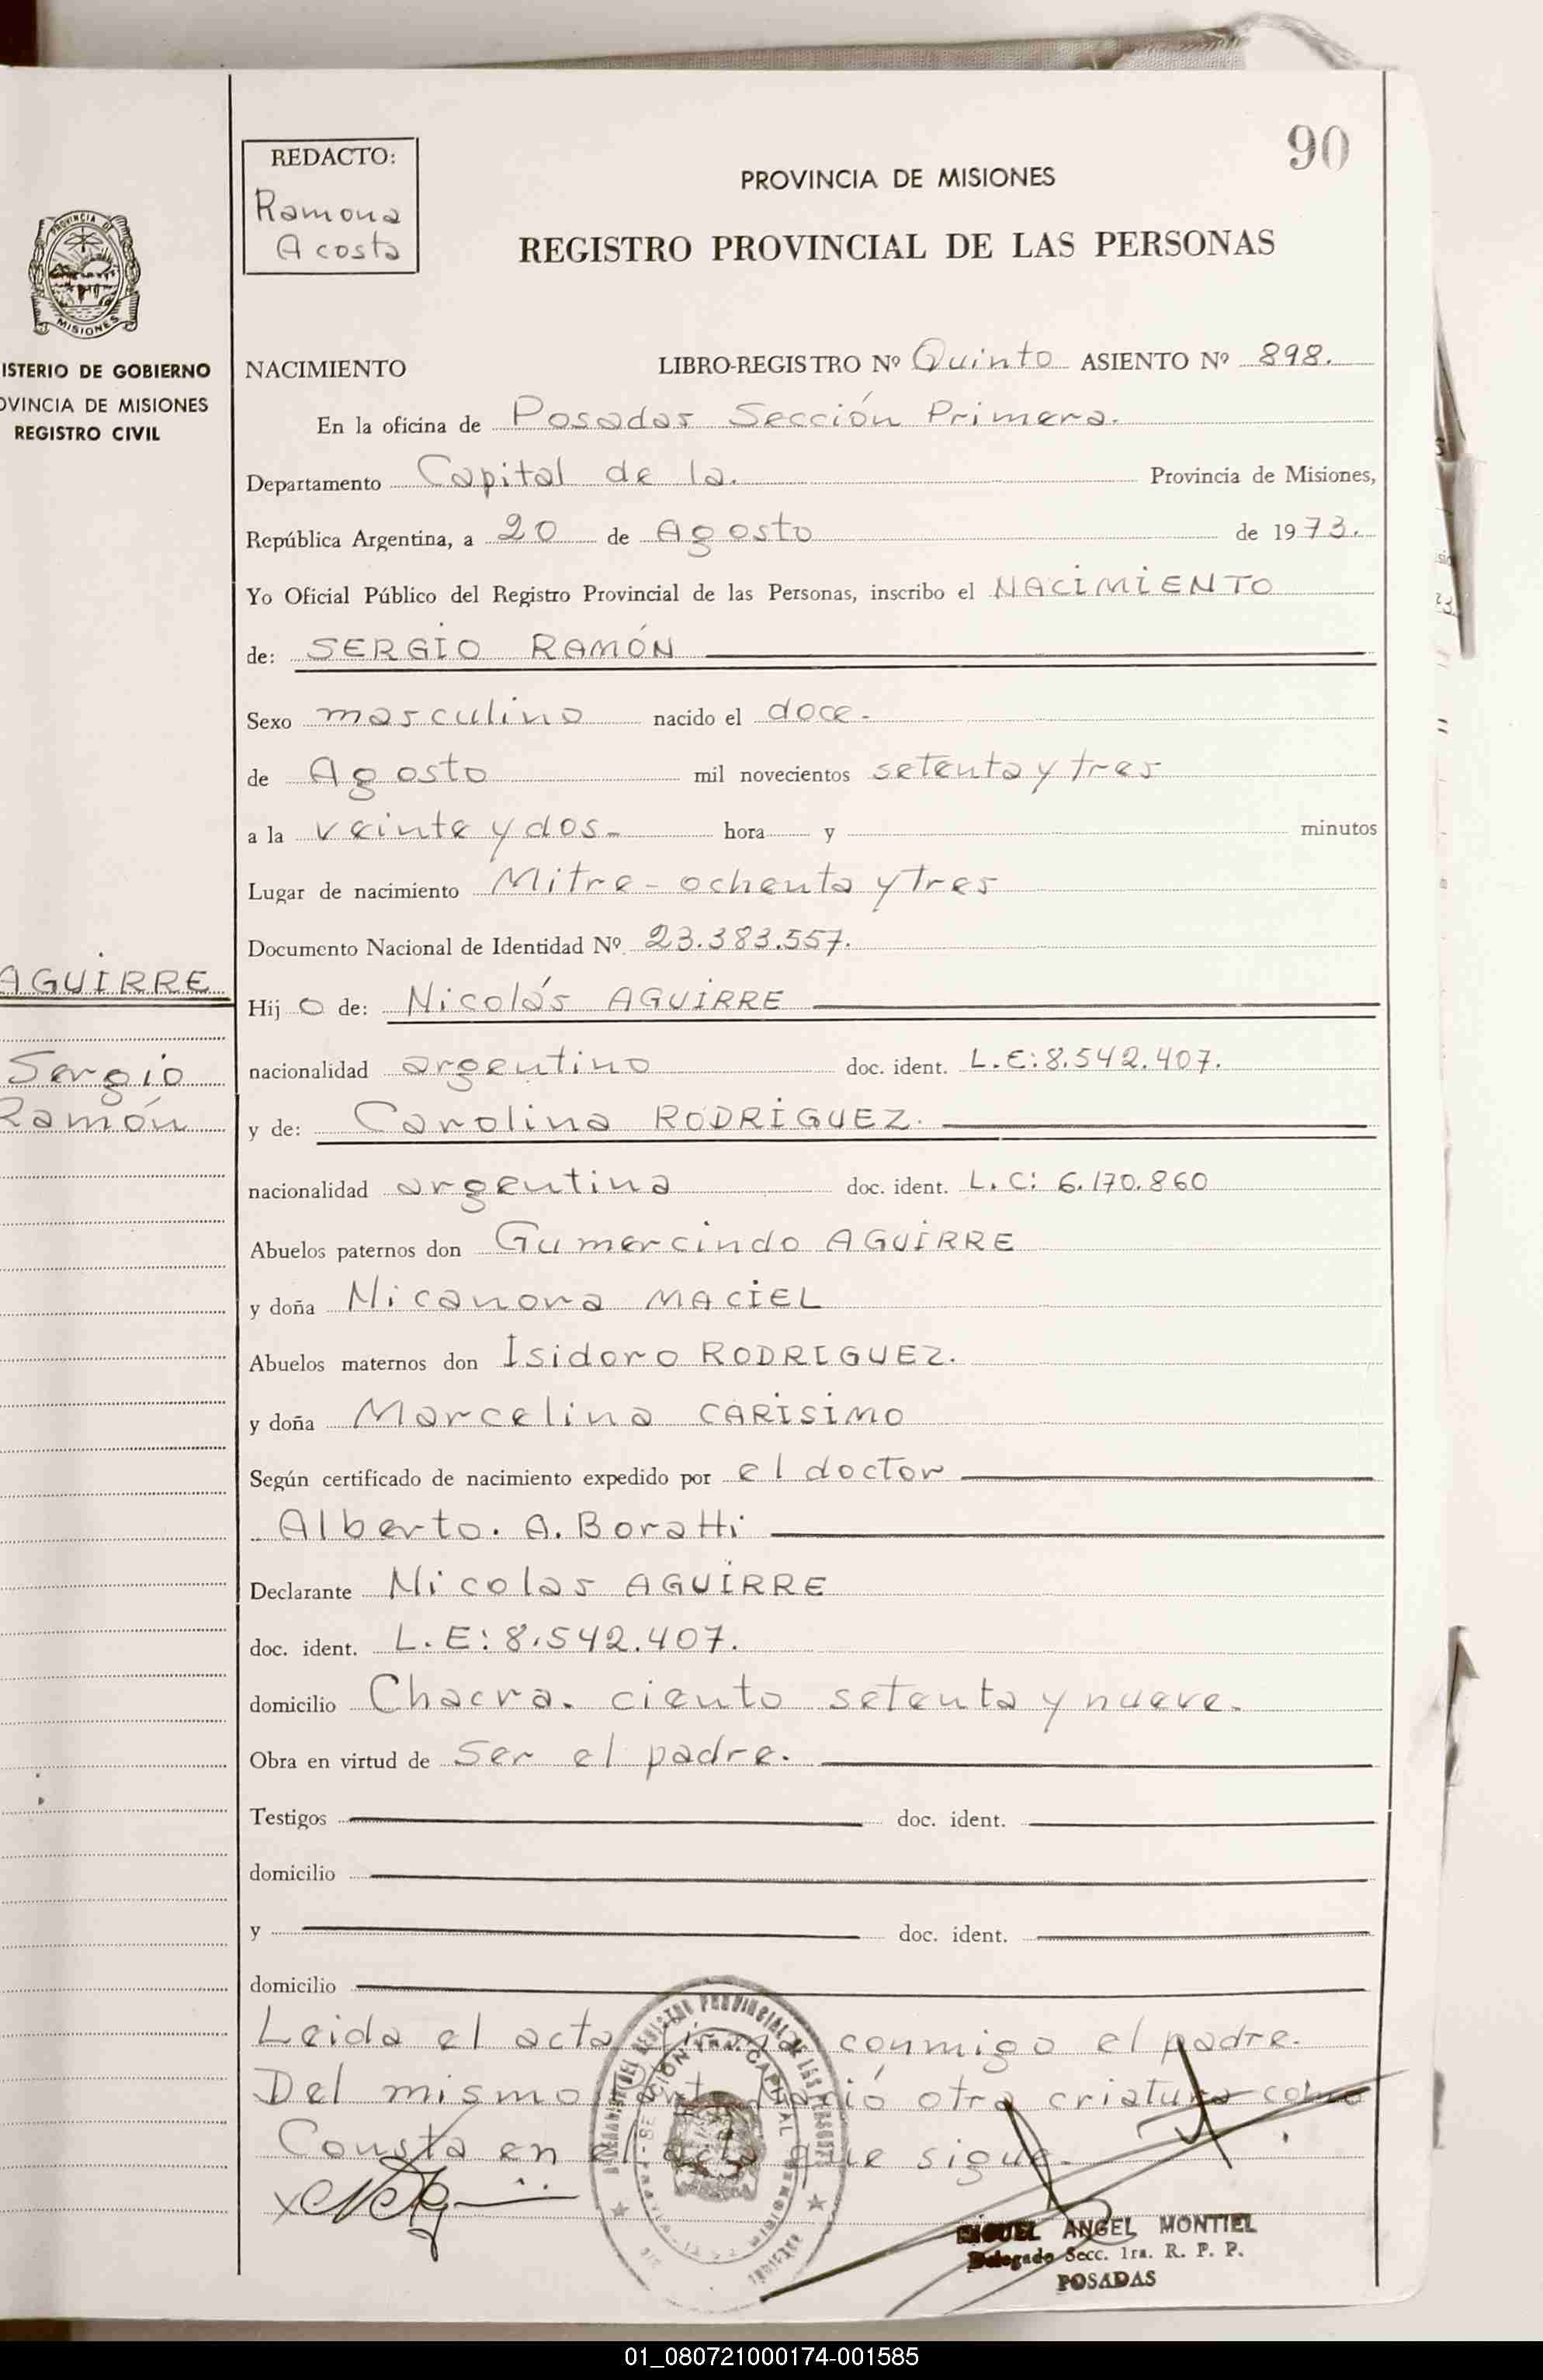 90
REDACTO:
Ramona
Acosta
PROVINCIA DE MISIONES
REGISTRO PROVINCIAL DE LAS PERSONAS
PROVINCIA DE
MISIONES
ISTERIO DE GOBIERNO
OVINCIA DE MISIONES
REGISTRO CIVIL
AGUIRRE
Sergio
Ramón
NACIMIENTO LIBRO-REGISTRO Nº Quinto ASIENTO Nº 898.
En la oficina de Posadas Sección Primera.
Departamento Capital de la. Provincia de Misiones,
República Argentina, a 20 de Agosto de 1973.
Yo Oficial Público del Registro Provincial de las Personas, inscribo el NACIMIENTO
de: SERGIO RAMÓN
Sexo masculino nacido el doce-
de Agosto mil novecientos setenta y tres
a la veinte y dos- hora y minutos
Lugar de nacimiento Mitre - ochenta y tres
Documento Nacional de Identidad Nº 23.383.557.
Hij o de: Nicolás AGUIRRE
nacionalidad argentino doc. ident. L.E: 8.542.407.
y de: Carolina RODRIGUEZ.
nacionalidad argentina doc. ident. L.C: 6.170.860
Abuelos paternos don Gumercindo AGUIRRE
y doña Nicanora MACIEL
Abuelos maternos don Isidoro RODRIGUEZ.
y doña Marcelina CARISIMO
Según certificado de nacimiento expedido por el doctor
Alberto. A. Boratti
Declarante Nicolas AGUIRRE
doc. ident. L.E: 8.542.407.
domicilio Chacra. ciento setenta y nueve.
Obra en virtud de ser el padre.
Testigos doc. ident.
domicilio
y doc. ident.
domicilio
Leida el acta firma conmigo el padre.
Del mismo parto nació otra criatura como
Consta en el acta que sigue.
MIGUEL ANGEL MONTIEL
Delegado Secc. 1ra. R. P. P.
POSADAS
01_080721000174-001585